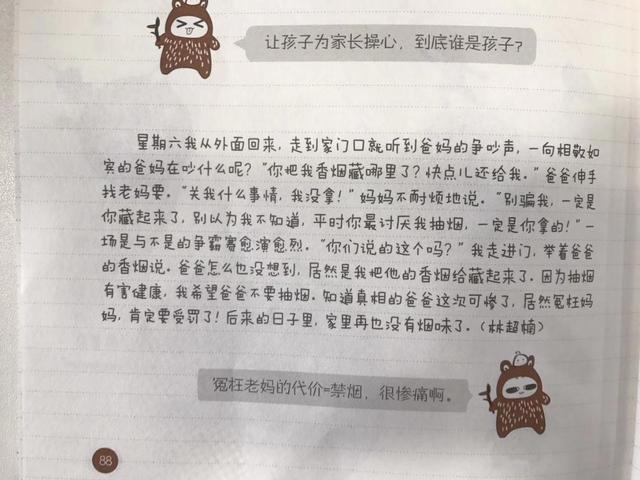 让孩子为家长操心，到底谁是孩子？
星期六我从外面回来，走到家门口就听到爸妈的争吵声，一向相敬如
宾的爸妈在吵什么呢？“你把我香烟藏哪里了？快点儿还给我。”爸爸伸手
找老妈要。“关我什么事情，我没拿！”妈妈不耐烦地说。“别骗我，一定是
你藏起来了，别以为我不知道，平时你最讨厌我抽烟，一定是你拿的！”一
场是与不是的争霸赛愈演愈烈。“你们说的这个吗？”我走进门，举着爸爸
的香烟说。爸爸怎么也没想到，居然是我把他的香烟给藏起来了。因为抽烟
有害健康，我希望爸爸不要抽烟。知道真相的爸爸这次可惨了，居然冤枉妈
妈，肯定要受罚了！后来的日子里，家里再也没有烟味了。（林超楠）
冤枉老妈的代价=禁烟，很惨痛啊。
88